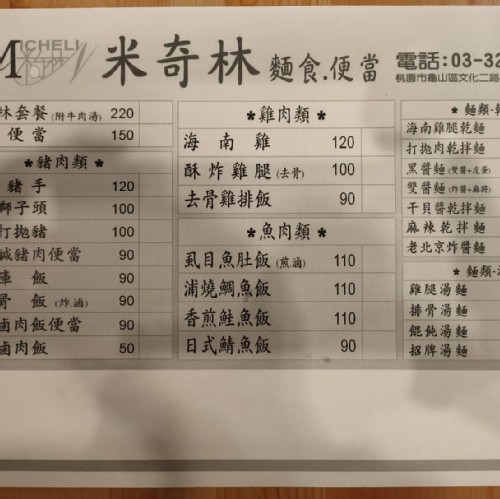 MICHELI
米奇林 麵食.便當
電話:03-32
桃園市龜山區文化二路
林套餐(附牛肉湯) 220
便當 150
*豬肉類*
豬手 120
獅子頭 100
打拋豬 100
鹹豬肉便當 90
庫飯 90
骨飯(炸.滷) 90
滷肉飯便當 90
滷肉飯 50
*雞肉類*
海南雞 120
酥炸雞腿(去骨) 100
去骨雞排飯 90
*魚肉類*
虱目魚肚飯(煎.滷) 110
蒲燒鯛魚飯 110
香煎鮭魚飯 110
日式鯖魚飯 90
*麵類-乾
海南雞腿乾麵
打拋肉乾拌麵
黑醬麵(雙醬+皮蛋)
雙醬麵(炸醬+麻將)
干貝醬乾拌麵
麻辣乾拌麵
老北京炸醬麵
*麵類-湯
雞腿湯麵
排骨湯麵
餛飩湯麵
招牌湯麵